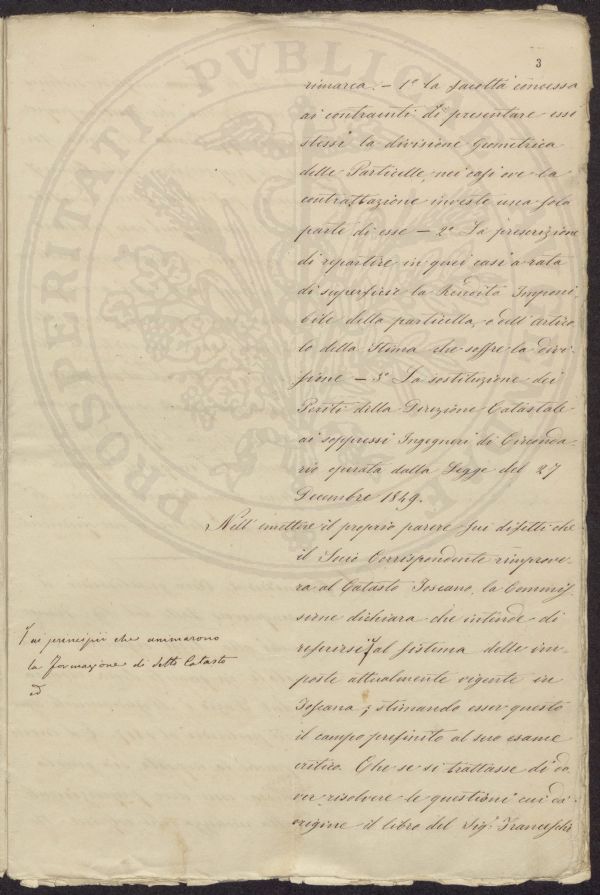 3
rimarca. - 1.° la facoltà concessa
ai contraenti di presentare essi
stessi la divisione Geometrica
delle Particelle, nei casi ove la
contrattazione investe una sola
parte di esse - 2.° La prescrizione
di repartire in quei casi a rata
di superficie la Rendita Imponi
bile della particella, e dell'Artico
lo della Stima che soffre la divi-
sione - 3.° La sostituzione dei
Periti della Direzione Catastale
ai soppressi Ingegneri di Circonda-
rio operata dalla Legge del 27
Decembre 1849.
Nell'emettere il proprio parere sui difetti che
il Socio Corrispondente rimprove-
ra al Catasto Toscano, la Commis-
sione dichiara che intende di
referirsi al sistema delle im-
poste attualmente vigente in
Toscana; stimando esser questo
il campo prefinito al suo esame
critico. Che se si trattasse di do
ver risolvere le questioni cui dà
origine il libro del Sig.r Franceschi
ai principii che animarono
la formazione di detto Catasto
ed
PROSPERITATI PVBLICAE